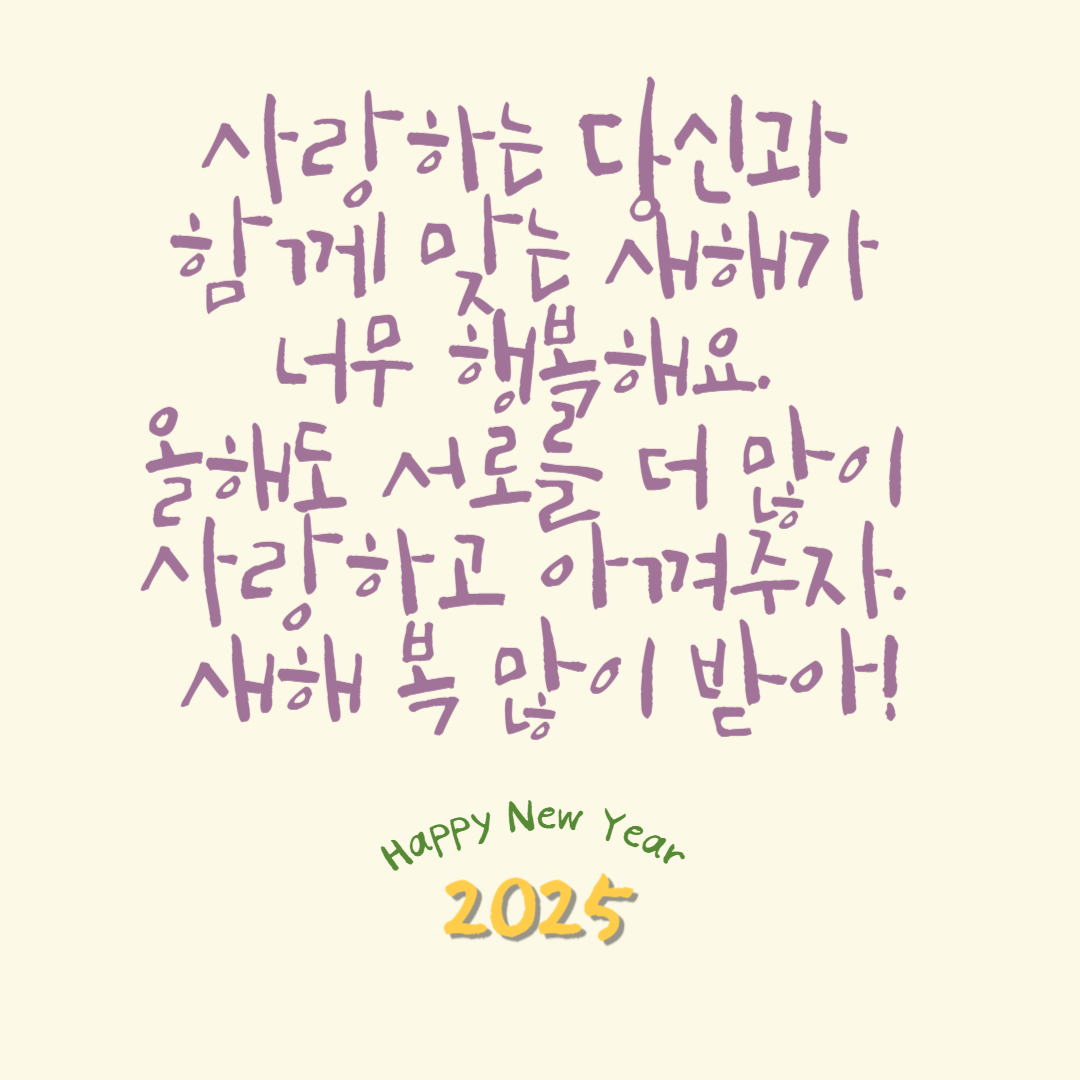 사랑하는 당신과
함께 맞는 새해가
너무 행복해요.
올해도 서로를 더 많이
사랑하고 아껴주자.
새해 복 많이 받아!
Happy New Year
2025